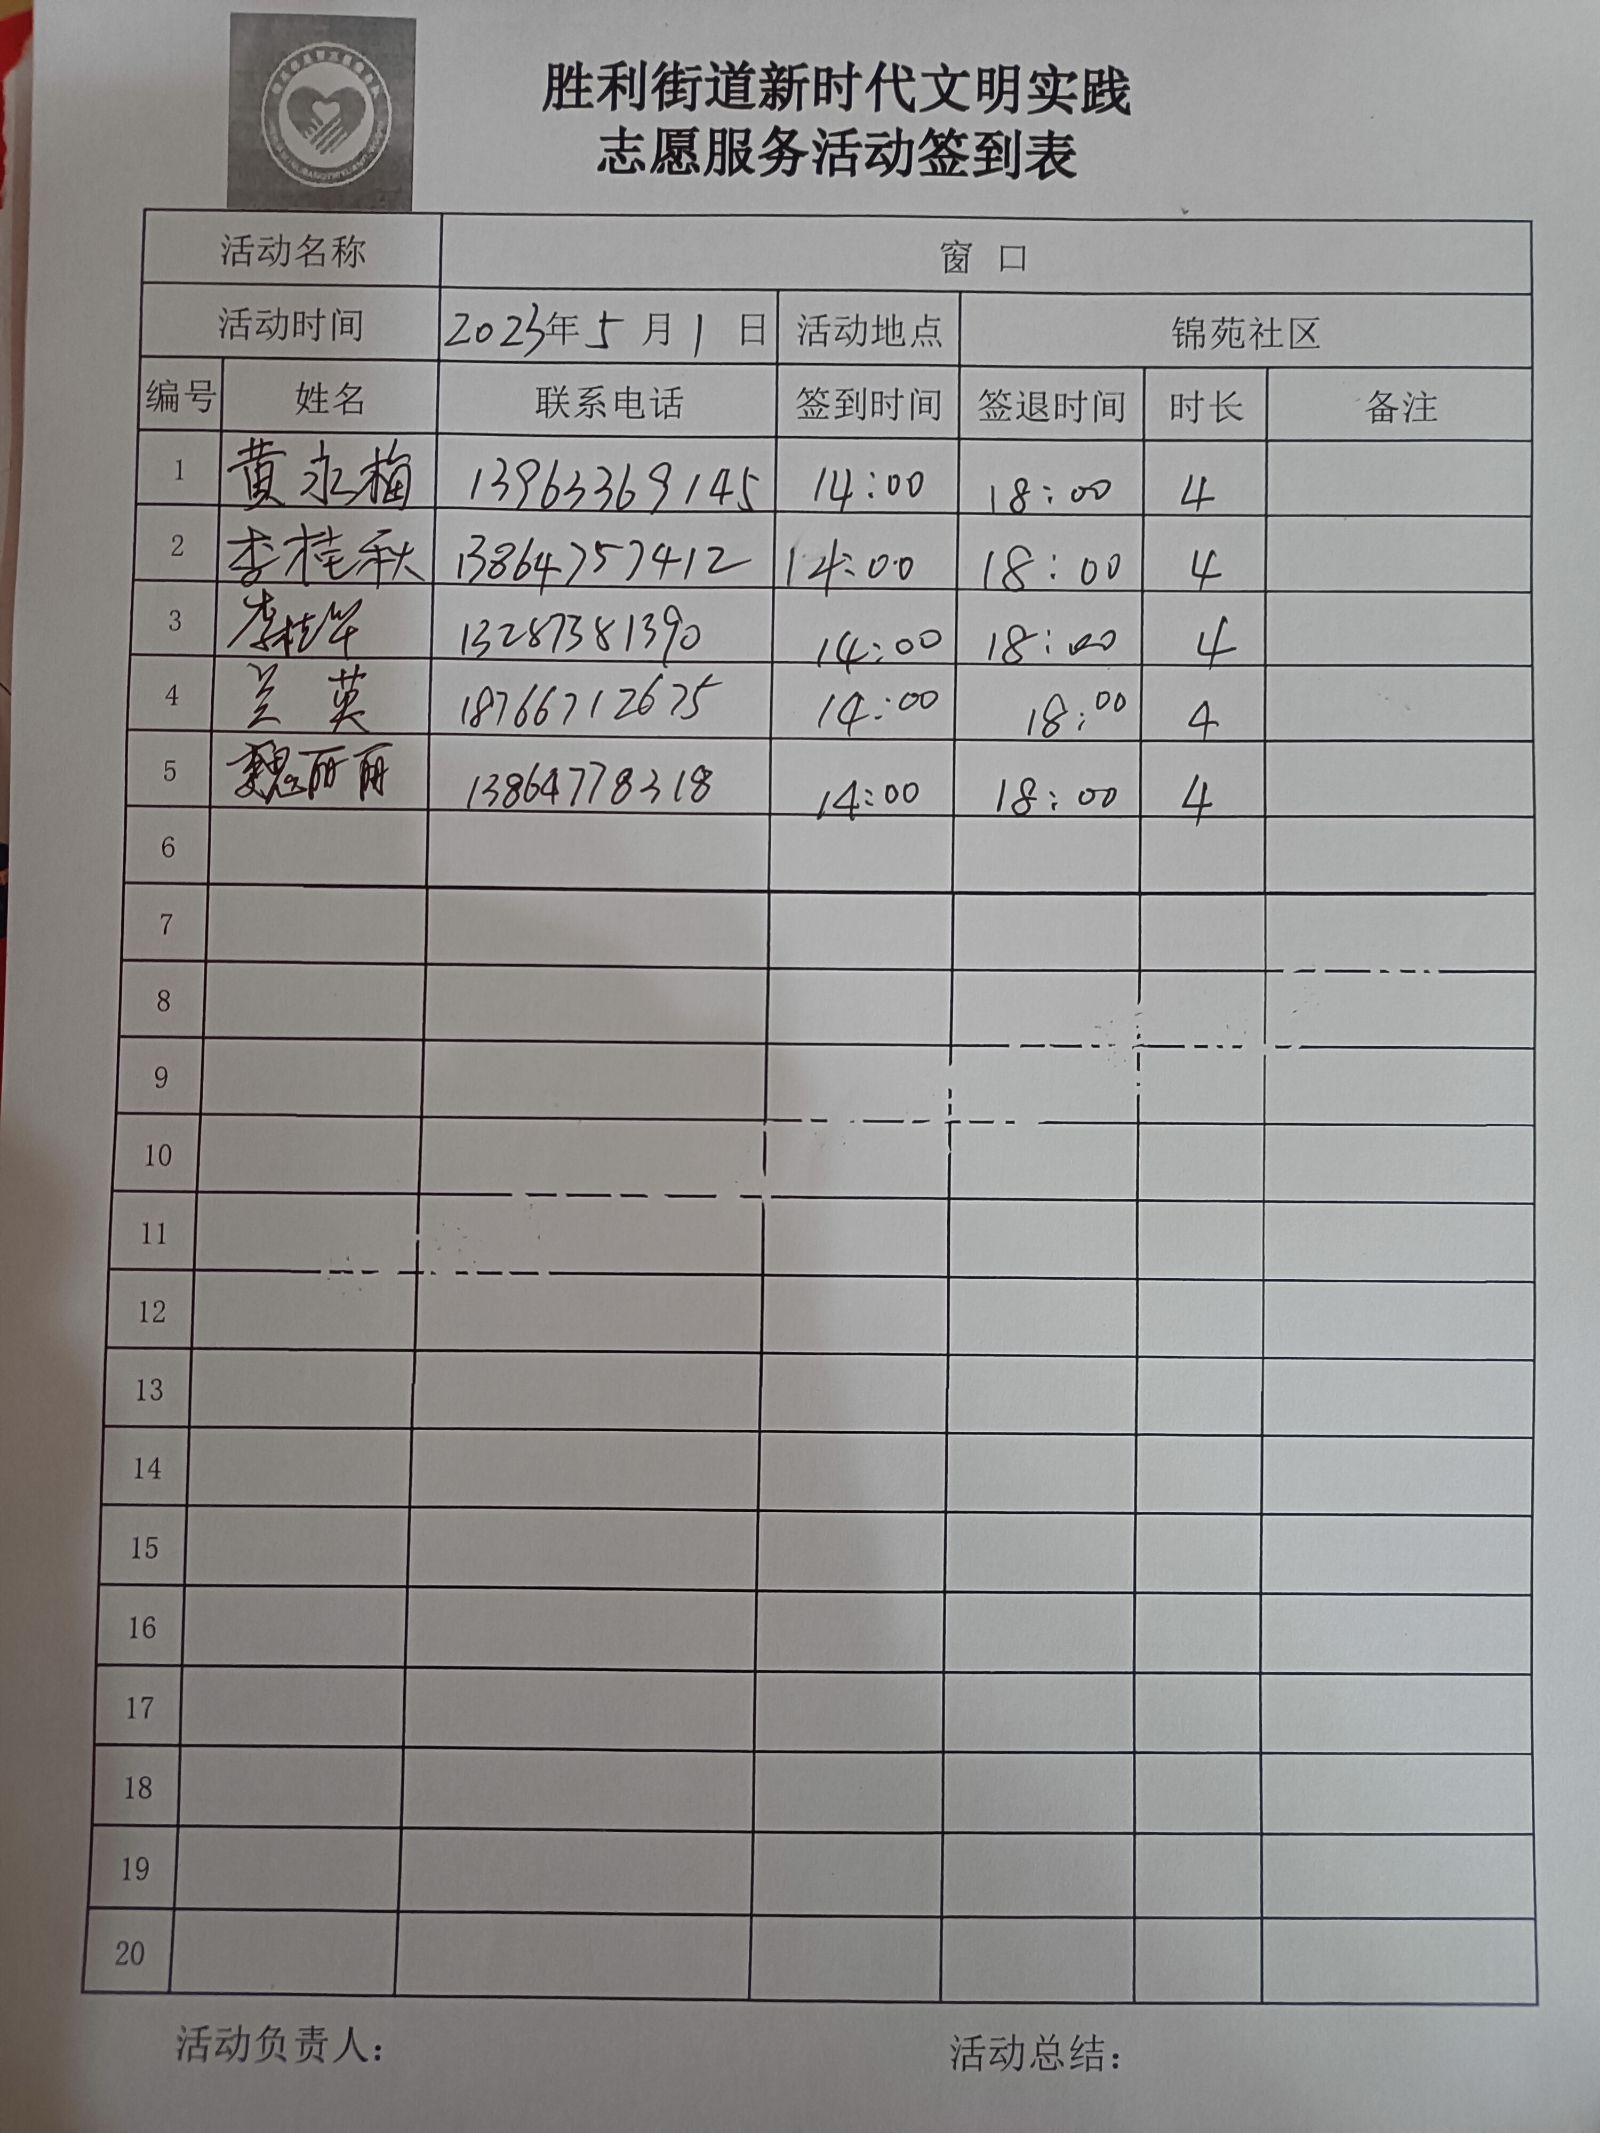 胜利街道新时代文明实践
志愿服务活动签到表
活动名称 窗 口
活动时间 2023年 5 月 1 日 活动地点 锦苑社区
编号 姓名 联系电话 签到时间 签退时间 时长 备注
1 黄永梅 13963369145 14:00 18:00 4
2 李桂秋 13864757412 14:00 18:00 4
3 李桂华 13287381390 14:00 18:00 4
4 兰英 18766712675 14:00 18:00 4
5 魏丽丽 13864778318 14:00 18:00 4
6
7
8
9
10
11
12
13
14
15
16
17
18
19
20
活动负责人: 活动总结: